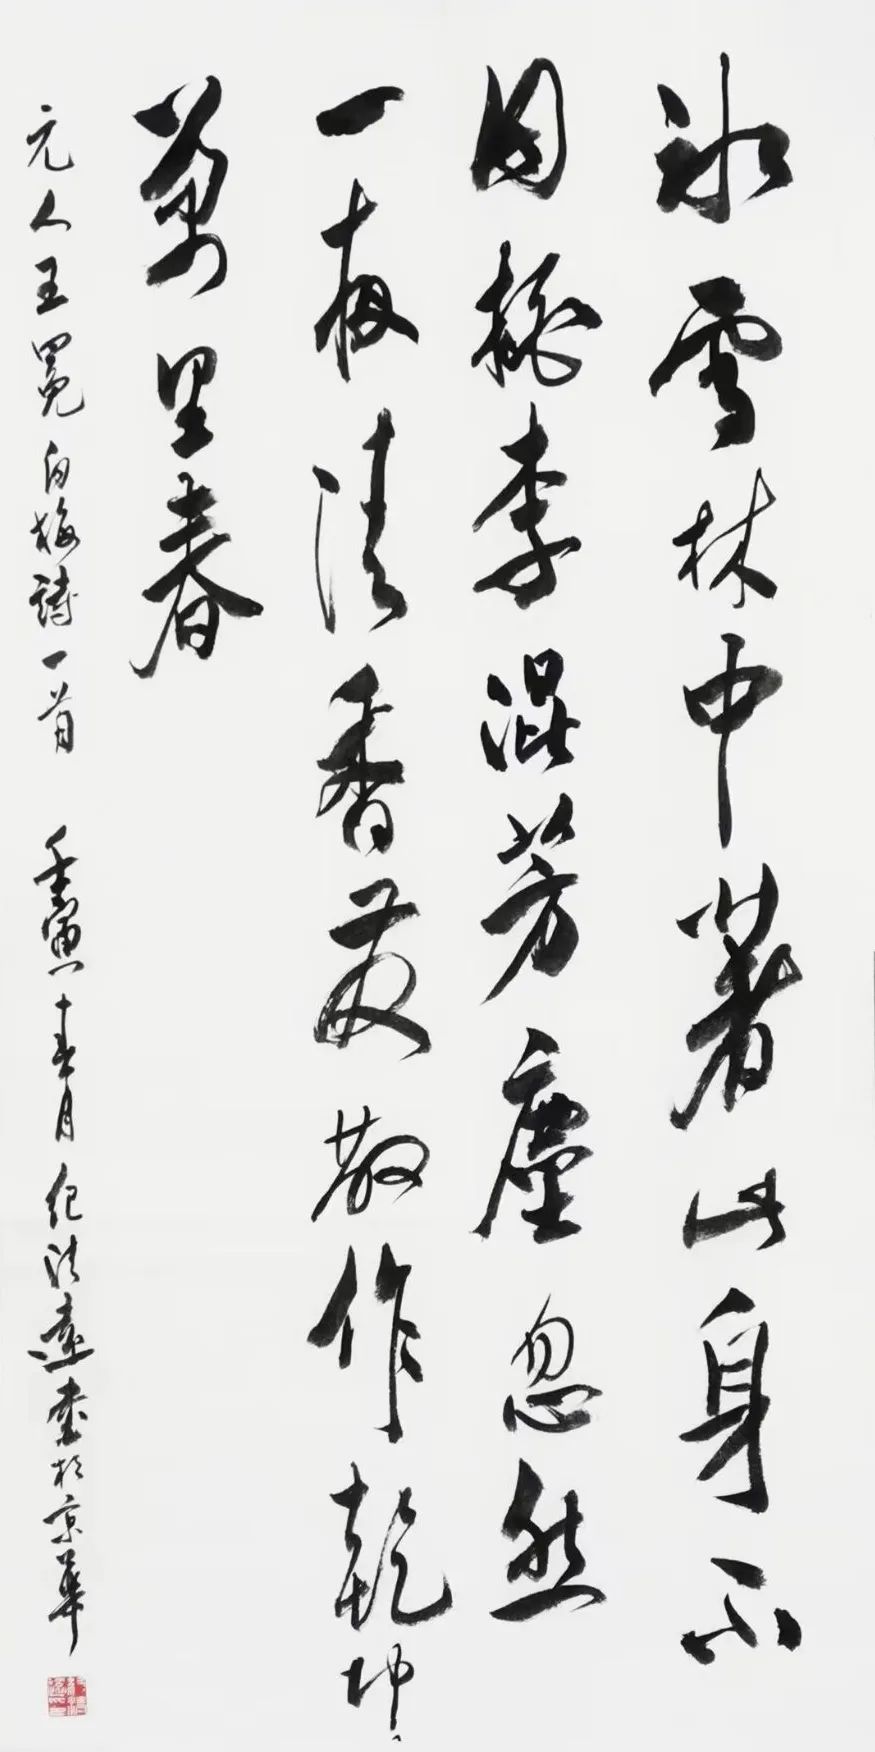 冰雪林中著此身不
同桃李混芳塵忽然
一夜清香發散作乾坤
萬里春
元人王冕白梅詩一首 壬寅 月 紀清遠書於京華